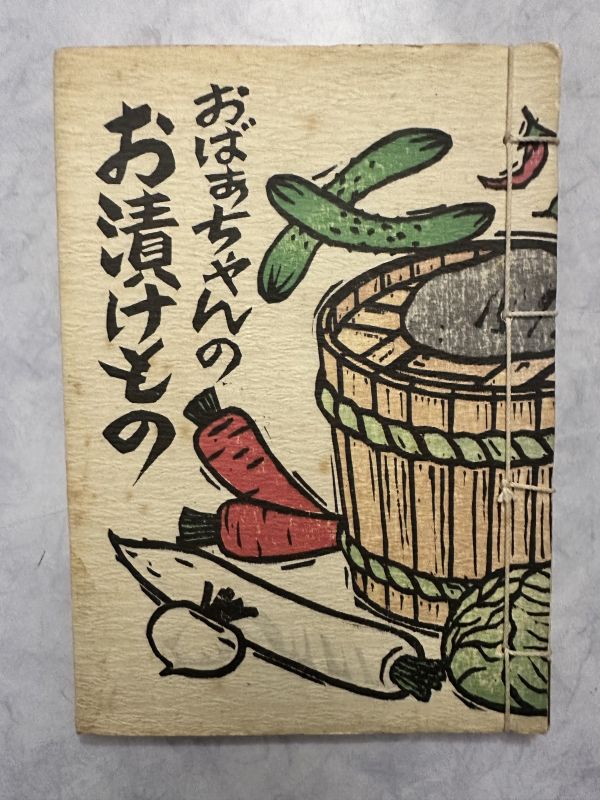 おばあちゃんの
お漬けもの